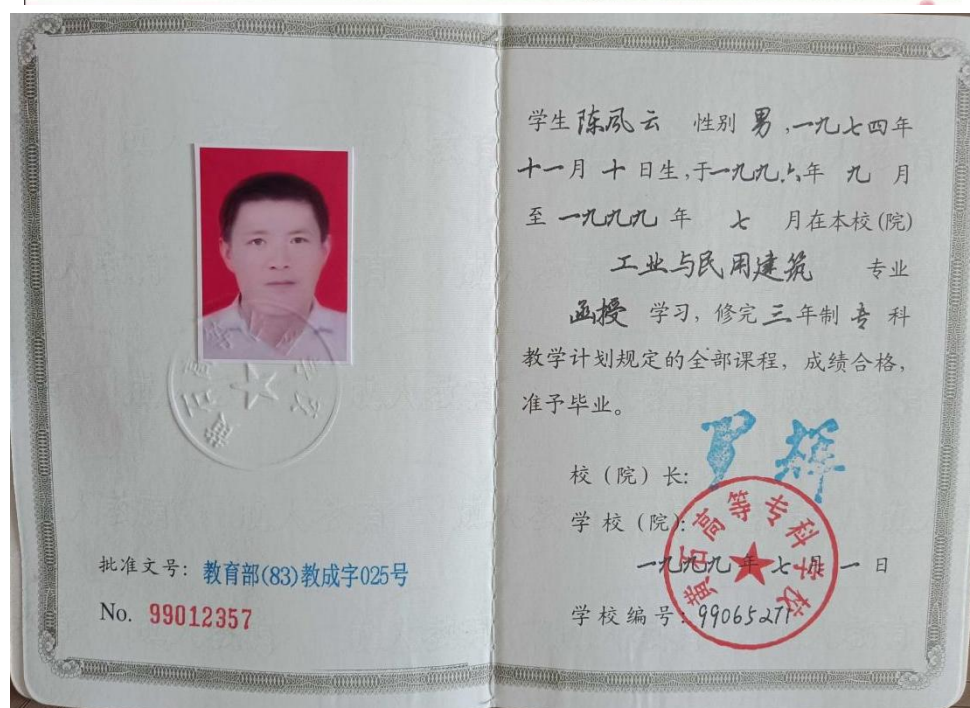 批准文号: 教育部(83)教成字025号
No. 99012357
学生 陈风云 性别 男,一九七四年
十一月 十 日生,于一九九六年 九 月
至 一九九九 年 七 月在本校(院)
工业与民用建筑 专业
函授 学习, 修完 三 年制 专 科
教学计划规定的全部课程, 成绩合格,
准予毕业。
校 (院) 长:
学 校 (院):
黄石高等专科学校
一九九九 年 七 月 一 日
学校编号: 99065271